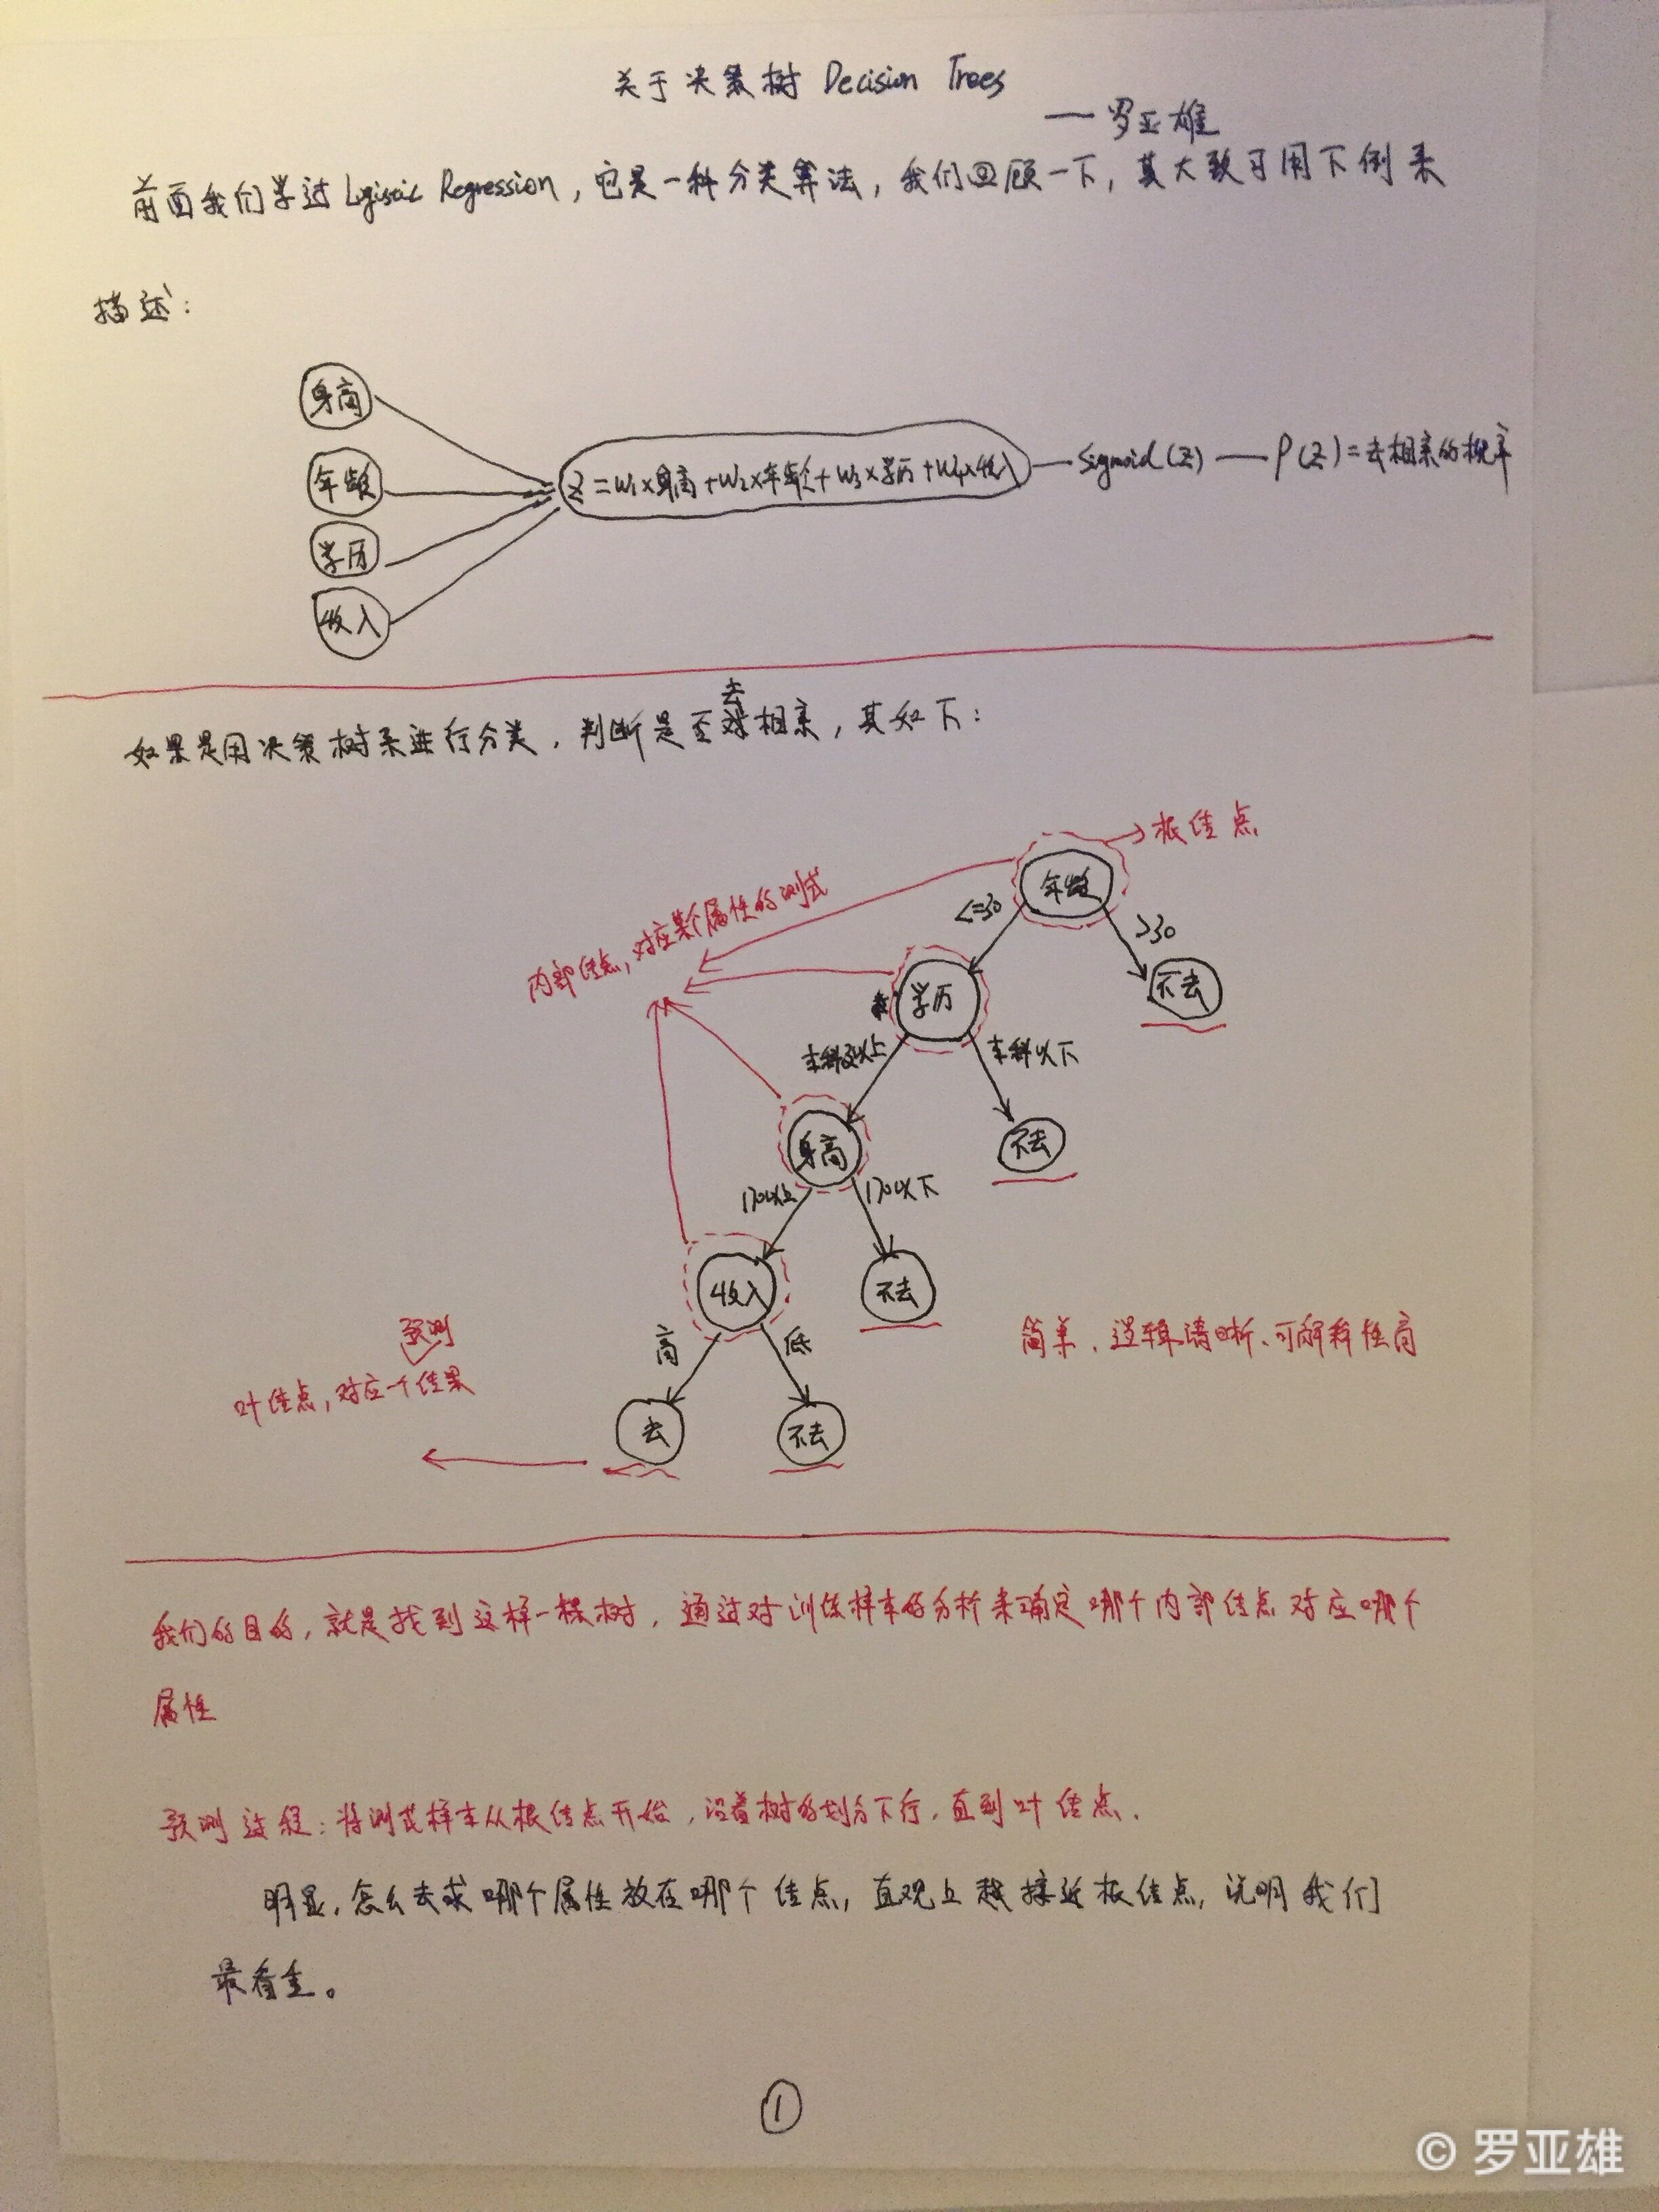 关于决策树 Decision Trees
—罗亚雄
前面我们学过 Logistic Regression，它是一种分类算法，我们回顾一下，其大致可用下例来
描述：
身高
年龄
学历
收入
Z=W1×身高+W2×年龄+W3×学历+W4×收入
Sigmoid(Z)
P(Z)=去相亲的概率
去
如果是用决策树来进行分类，判断是否相亲，其如下：
根结点
年龄
<=30
>30
内部结点，对应某个属性的测试
学历
不去
本科及以上
本科以下
身高
不去
170以上
170以下
收入
不去
简单、逻辑清晰、可解释性高
高
低
预测
叶结点，对应一个结果
去
不去
我们的目的，就是找到这样一棵树，通过对训练样本的分析来确定哪个内部结点对应哪个
属性
预测过程：将测试样本从根结点开始，沿着树的划分下行，直到叶结点．
明显，怎么去求哪个属性放在哪个结点，直观上越接近根结点，说明我们
最看重。
1
© 罗亚雄